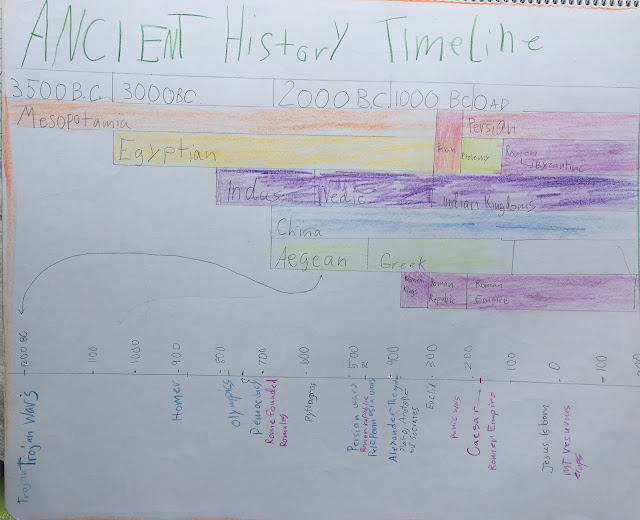 ANCIENT History Timeline
3500 B.C. 3000 BC 2000 BC 1000 BC 0 AD
Mesopotamia Persian
Egyptian Roman Byzantine
Indus Vedic Indian Kingdoms
China
Aegean Greek
Roman Kings
Roman Republic
Roman Empire
1200 BC 1100 1000 900 800 700 600 500 400 300 200 100 0 100
Trojan Trojan Wars
Homer
Olympics
Democracy
Rome Founded
Romulus
Pythagoras
Persian wars
Roman republic
Peloponnesian wars
Alexander The great
Socrates
Euclid
Punic wars
Caesar
Roman Empire
Jesus Is born
MT Vesuvius